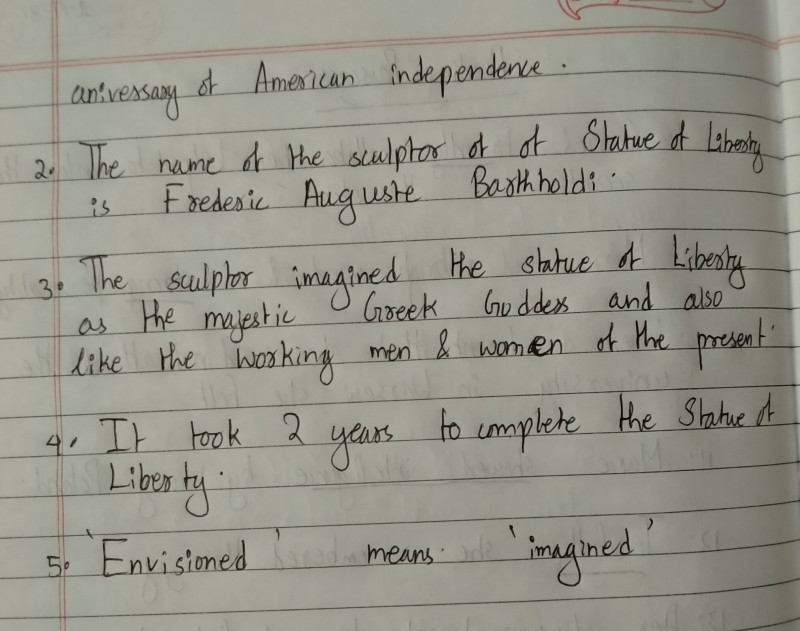 aniversary of American independence.
2. The name of the sculptor of of Statue of Liberty
is Frederic Auguste Barthholdi.
3. The sculptor imagined the statue of Liberty
as the majestic Greek Goddess and also
like the working men & women of the present.
4. It took 2 years to complete the Statue of
Liberty.
5. 'Envisioned' means. 'imagined'